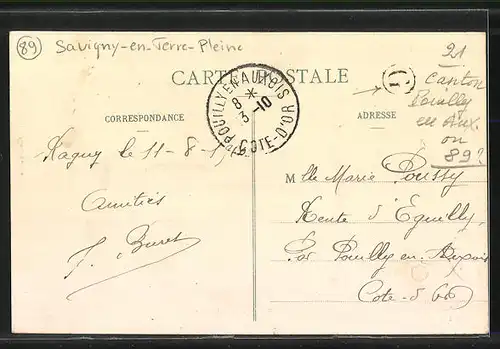 89
Savigny-en-Terre-Pleine
CARTE POSTALE
POUILLY EN AUXOIS
8 *
3-10
COTE-D'OR
CORRESPONDANCE
ADRESSE
21
Canton
Pouilly
en Aux.
ou
89?
le 11-8-
Amitiés
Mlle Marie Poussy
d'Eguilly
Par Pouilly en Auxois
Cote-d'Or